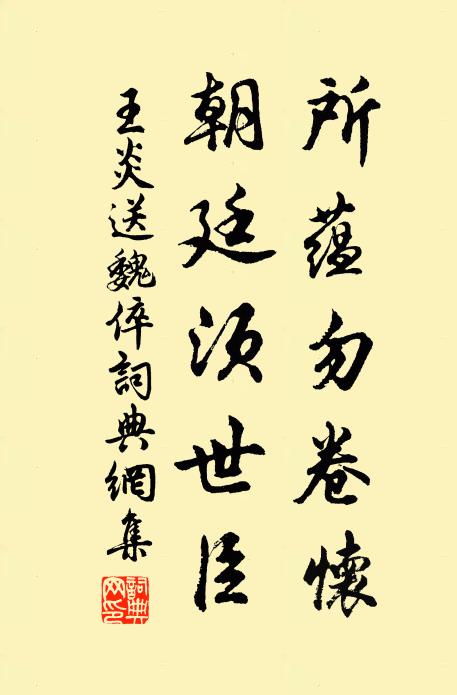 所蘊勿卷懷
朝廷須世臣
王炎送魏倅詞典網集
詞典網印